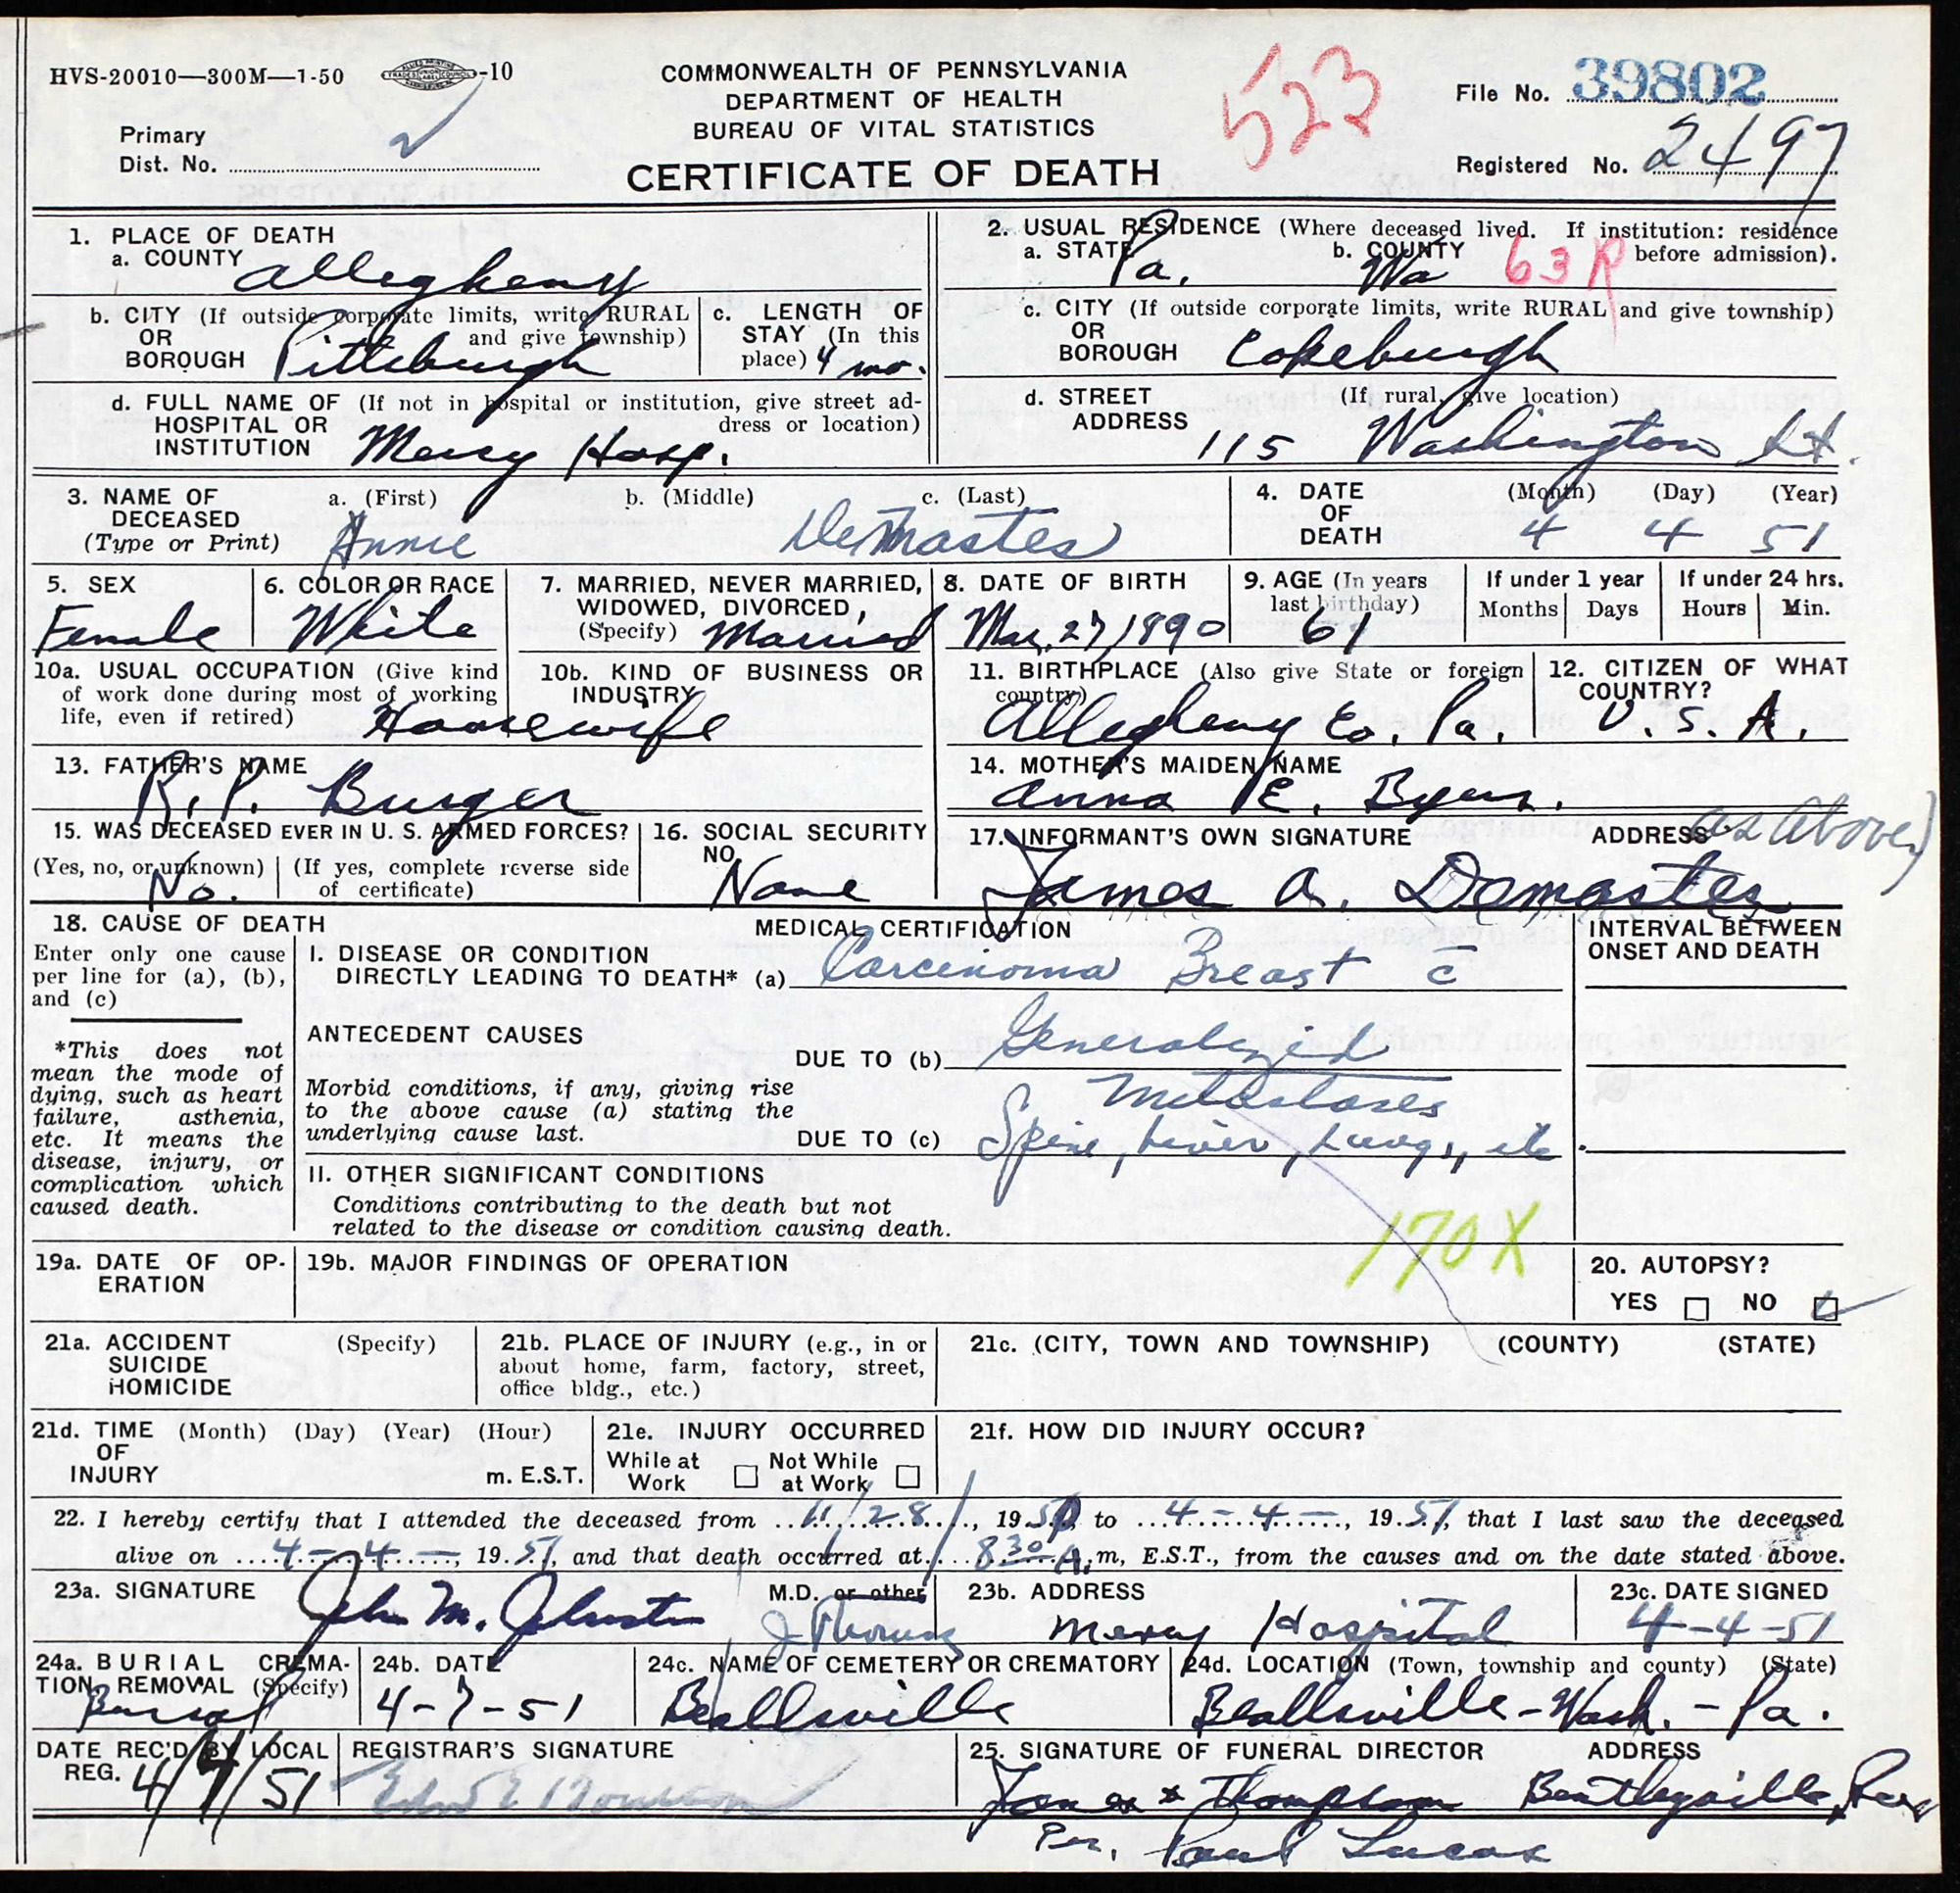 HVS-20010—300M—1-50 -10
COMMONWEALTH OF PENNSYLVANIA
DEPARTMENT OF HEALTH
BUREAU OF VITAL STATISTICS
CERTIFICATE OF DEATH
523
File No. 39802
Registered No. 2497
Primary
Dist. No.
1. PLACE OF DEATH
a. COUNTY Allegheny
b. CITY (If outside corporate limits, write RURAL
OR and give township)
BOROUGH Pittsburgh
c. LENGTH OF
STAY (In this
place) 4 mo.
d. FULL NAME OF (If not in hospital or institution, give street ad-
HOSPITAL OR dress or location)
INSTITUTION Mercy Hosp.
2. USUAL RESIDENCE (Where deceased lived. If institution: residence
a. STATE Pa. b. COUNTY Wa 63 R before admission).
c. CITY (If outside corporate limits, write RURAL and give township)
OR
BOROUGH Cokeburgh
d. STREET (If rural, give location)
ADDRESS 115 Washington St.
3. NAME OF a. (First) b. (Middle) c. (Last)
DECEASED
(Type or Print) Annie DeMastes
4. DATE (Month) (Day) (Year)
OF
DEATH 4 4 51
5. SEX
Female
6. COLOR OR RACE
White
7. MARRIED, NEVER MARRIED,
WIDOWED, DIVORCED,
(Specify) Married
8. DATE OF BIRTH
Mar. 27, 1890
9. AGE (In years
last birthday)
61
If under 1 year
Months Days
If under 24 hrs.
Hours Min.
10a. USUAL OCCUPATION (Give kind
of work done during most of working
life, even if retired) Housewife
10b. KIND OF BUSINESS OR
INDUSTRY
11. BIRTHPLACE (Also give State or foreign
country)
Allegheny Co. Pa.
12. CITIZEN OF WHAT
COUNTRY?
U. S. A.
13. FATHER'S NAME
R. P. Burger
14. MOTHER'S MAIDEN NAME
Anna E. Byers.
15. WAS DECEASED EVER IN U. S. ARMED FORCES?
(Yes, no, or unknown) (If yes, complete reverse side
No. of certificate)
16. SOCIAL SECURITY
NO.
None
17. INFORMANT'S OWN SIGNATURE ADDRESS as above)
James A. Demastes
18. CAUSE OF DEATH
Enter only one cause
per line for (a), (b),
and (c)
*This does not
mean the mode of
dying, such as heart
failure, asthenia,
etc. It means the
disease, injury, or
complication which
caused death.
MEDICAL CERTIFICATION
I. DISEASE OR CONDITION
DIRECTLY LEADING TO DEATH* (a) Carcinoma Breast c̄
ANTECEDENT CAUSES
DUE TO (b) Generalized
Metastases
Morbid conditions, if any, giving rise
to the above cause (a) stating the
underlying cause last.
DUE TO (c) Spine, Liver, Lungs, etc
II. OTHER SIGNIFICANT CONDITIONS
Conditions contributing to the death but not
related to the disease or condition causing death.
170X
INTERVAL BETWEEN
ONSET AND DEATH
19a. DATE OF OP-
ERATION
19b. MAJOR FINDINGS OF OPERATION
20. AUTOPSY?
YES NO
21a. ACCIDENT (Specify)
SUICIDE
HOMICIDE
21b. PLACE OF INJURY (e.g., in or
about home, farm, factory, street,
office bldg., etc.)
21c. (CITY, TOWN AND TOWNSHIP) (COUNTY) (STATE)
21d. TIME (Month) (Day) (Year) (Hour)
OF
INJURY m. E.S.T.
21e. INJURY OCCURRED
While at Not While
Work at Work
21f. HOW DID INJURY OCCUR?
22. I hereby certify that I attended the deceased from 11/28/, 1950, to 4-4-, 1951, that I last saw the deceased
alive on 4-4-, 1951, and that death occurred at 8 30 A.m, E.S.T., from the causes and on the date stated above.
23a. SIGNATURE John M. Johnston M.D. or other
23b. ADDRESS
Mercy Hospital
23c. DATE SIGNED
4-4-51
24a. BURIAL CREMA-
TION, REMOVAL (Specify)
Burial
24b. DATE
4-7-51
24c. NAME OF CEMETERY OR CREMATORY
Beallsville
24d. LOCATION (Town, township and county) (State)
Beallsville-Wash.-Pa.
DATE REC'D BY LOCAL
REG. 4/7/51
REGISTRAR'S SIGNATURE
25. SIGNATURE OF FUNERAL DIRECTOR ADDRESS
Jones & Thompson Bentleyville, Penn
Per. Paul Lucas